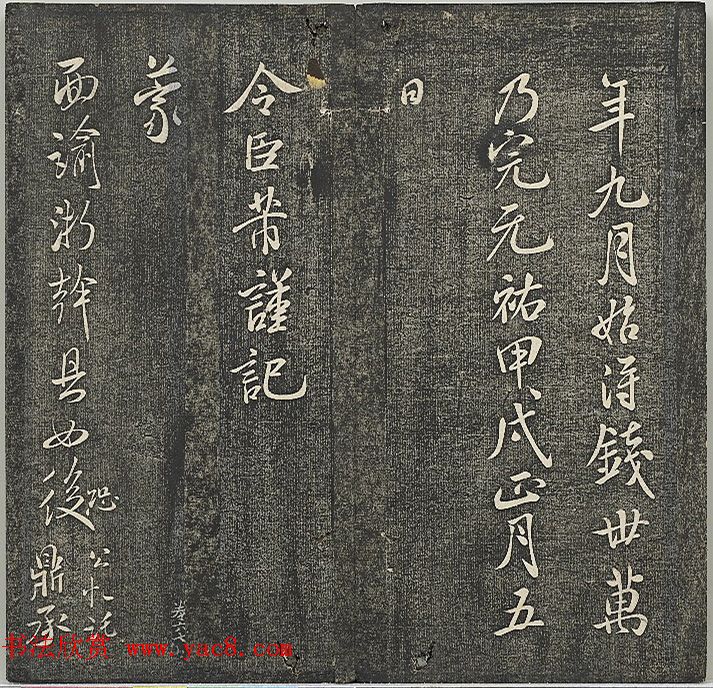 年九月始得錢卅萬
乃完元祐甲戌正月五
日
令臣芾謹記
蒙
面諭淅幹具如後
恐
公忙託
鼎承
书法欣赏 www.yac8.com